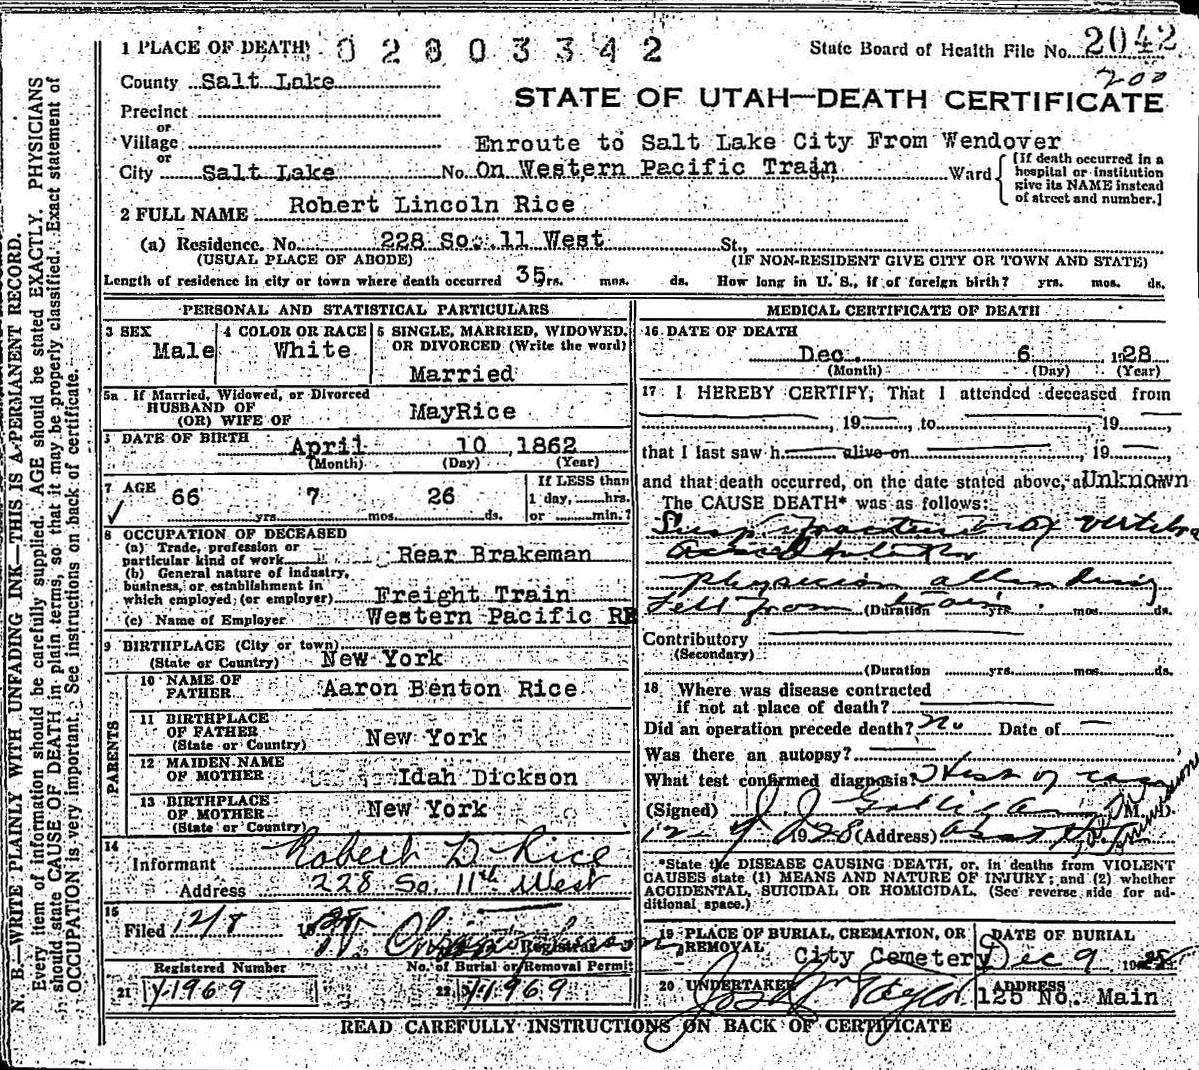 1 PLACE OF DEATH
0 2 8 0 3 3 4 2
State Board of Health File No. 2042
200
County Salt Lake
STATE OF UTAH—DEATH CERTIFICATE
Precinct
or
Village
Enroute to Salt Lake City From Wendover
or
City Salt Lake No. On Western Pacific Train St, Ward
[If death occurred in a
hospital or institution
give its NAME instead
of street and number.]
2 FULL NAME Robert Lincoln Rice
(a) Residence. No. 228 So. 11 West St.,
(USUAL PLACE OF ABODE) (IF NON-RESIDENT GIVE CITY OR TOWN AND STATE)
Length of residence in city or town where death occurred 35 yrs. mos. ds. How long in U. S., if of foreign birth? yrs. mos. ds.
PERSONAL AND STATISTICAL PARTICULARS
3 SEX
Male
4 COLOR OR RACE
White
5 SINGLE, MARRIED, WIDOWED,
OR DIVORCED (Write the word)
Married
5a If Married, Widowed, or Divorced
HUSBAND OF
(OR) WIFE OF
MayRice
DATE OF BIRTH
April 10, 1862
(Month) (Day) (Year)
7 AGE
66 yrs. 7 mos. 26 ds.
If LESS than
1 day, hrs.
or min.?
8 OCCUPATION OF DECEASED
(a) Trade, profession or
particular kind of work Rear Brakeman
(b) General nature of industry,
business, or establishment in
which employed (or employer) Freight Train
(c) Name of Employer Western Pacific RR
9 BIRTHPLACE (City or town)
(State or Country) New York
PARENTS
10 NAME OF
FATHER Aaron Benton Rice
11 BIRTHPLACE
OF FATHER
(State or Country) New York
12 MAIDEN NAME
OF MOTHER Idah Dickson
13 BIRTHPLACE
OF MOTHER
(State or Country) New York
14
Informant Robert D. Rice
Address 228 So. 11th West
15
Filed 12/8 Registrar
Registered Number
21 Y1969
No. of Burial or Removal Permit
22 Y1969
MEDICAL CERTIFICATE OF DEATH
16 DATE OF DEATH
Dec. 6 1928
(Month) (Day) (Year)
17 I HEREBY CERTIFY, That I attended deceased from
, 19 , to , 19 ,
that I last saw h alive on , 19 ,
and that death occurred, on the date stated above, at Unknown
The CAUSE DEATH* was as follows:
vertebra
physician attending
Fell from (Duration yrs. mos. ds.
Contributory
(Secondary)
(Duration yrs. mos. ds.
18 Where was disease contracted
if not at place of death?
Did an operation precede death? no Date of —
Was there an autopsy?
What test confirmed diagnosis?
(Signed) M.D.
1928 (Address)
*State the DISEASE CAUSING DEATH, or, in deaths from VIOLENT
CAUSES state (1) MEANS AND NATURE OF INJURY; and (2) whether
ACCIDENTAL, SUICIDAL OR HOMICIDAL. (See reverse side for ad-
ditional space.)
19 PLACE OF BURIAL, CREMATION, OR
REMOVAL
City Cemetery
DATE OF BURIAL
Dec 9
20 UNDERTAKER
ADDRESS
125 No. Main
READ CAREFULLY INSTRUCTIONS ON BACK OF CERTIFICATE
N. B.—WRITE PLAINLY WITH UNFADING INK—THIS IS A PERMANENT RECORD.
Every item of information should be carefully supplied. AGE should be stated EXACTLY. PHYSICIANS
should state CAUSE OF DEATH in plain terms, so that it may be properly classified. Exact statement of
OCCUPATION is very important. See instructions on back of certificate.